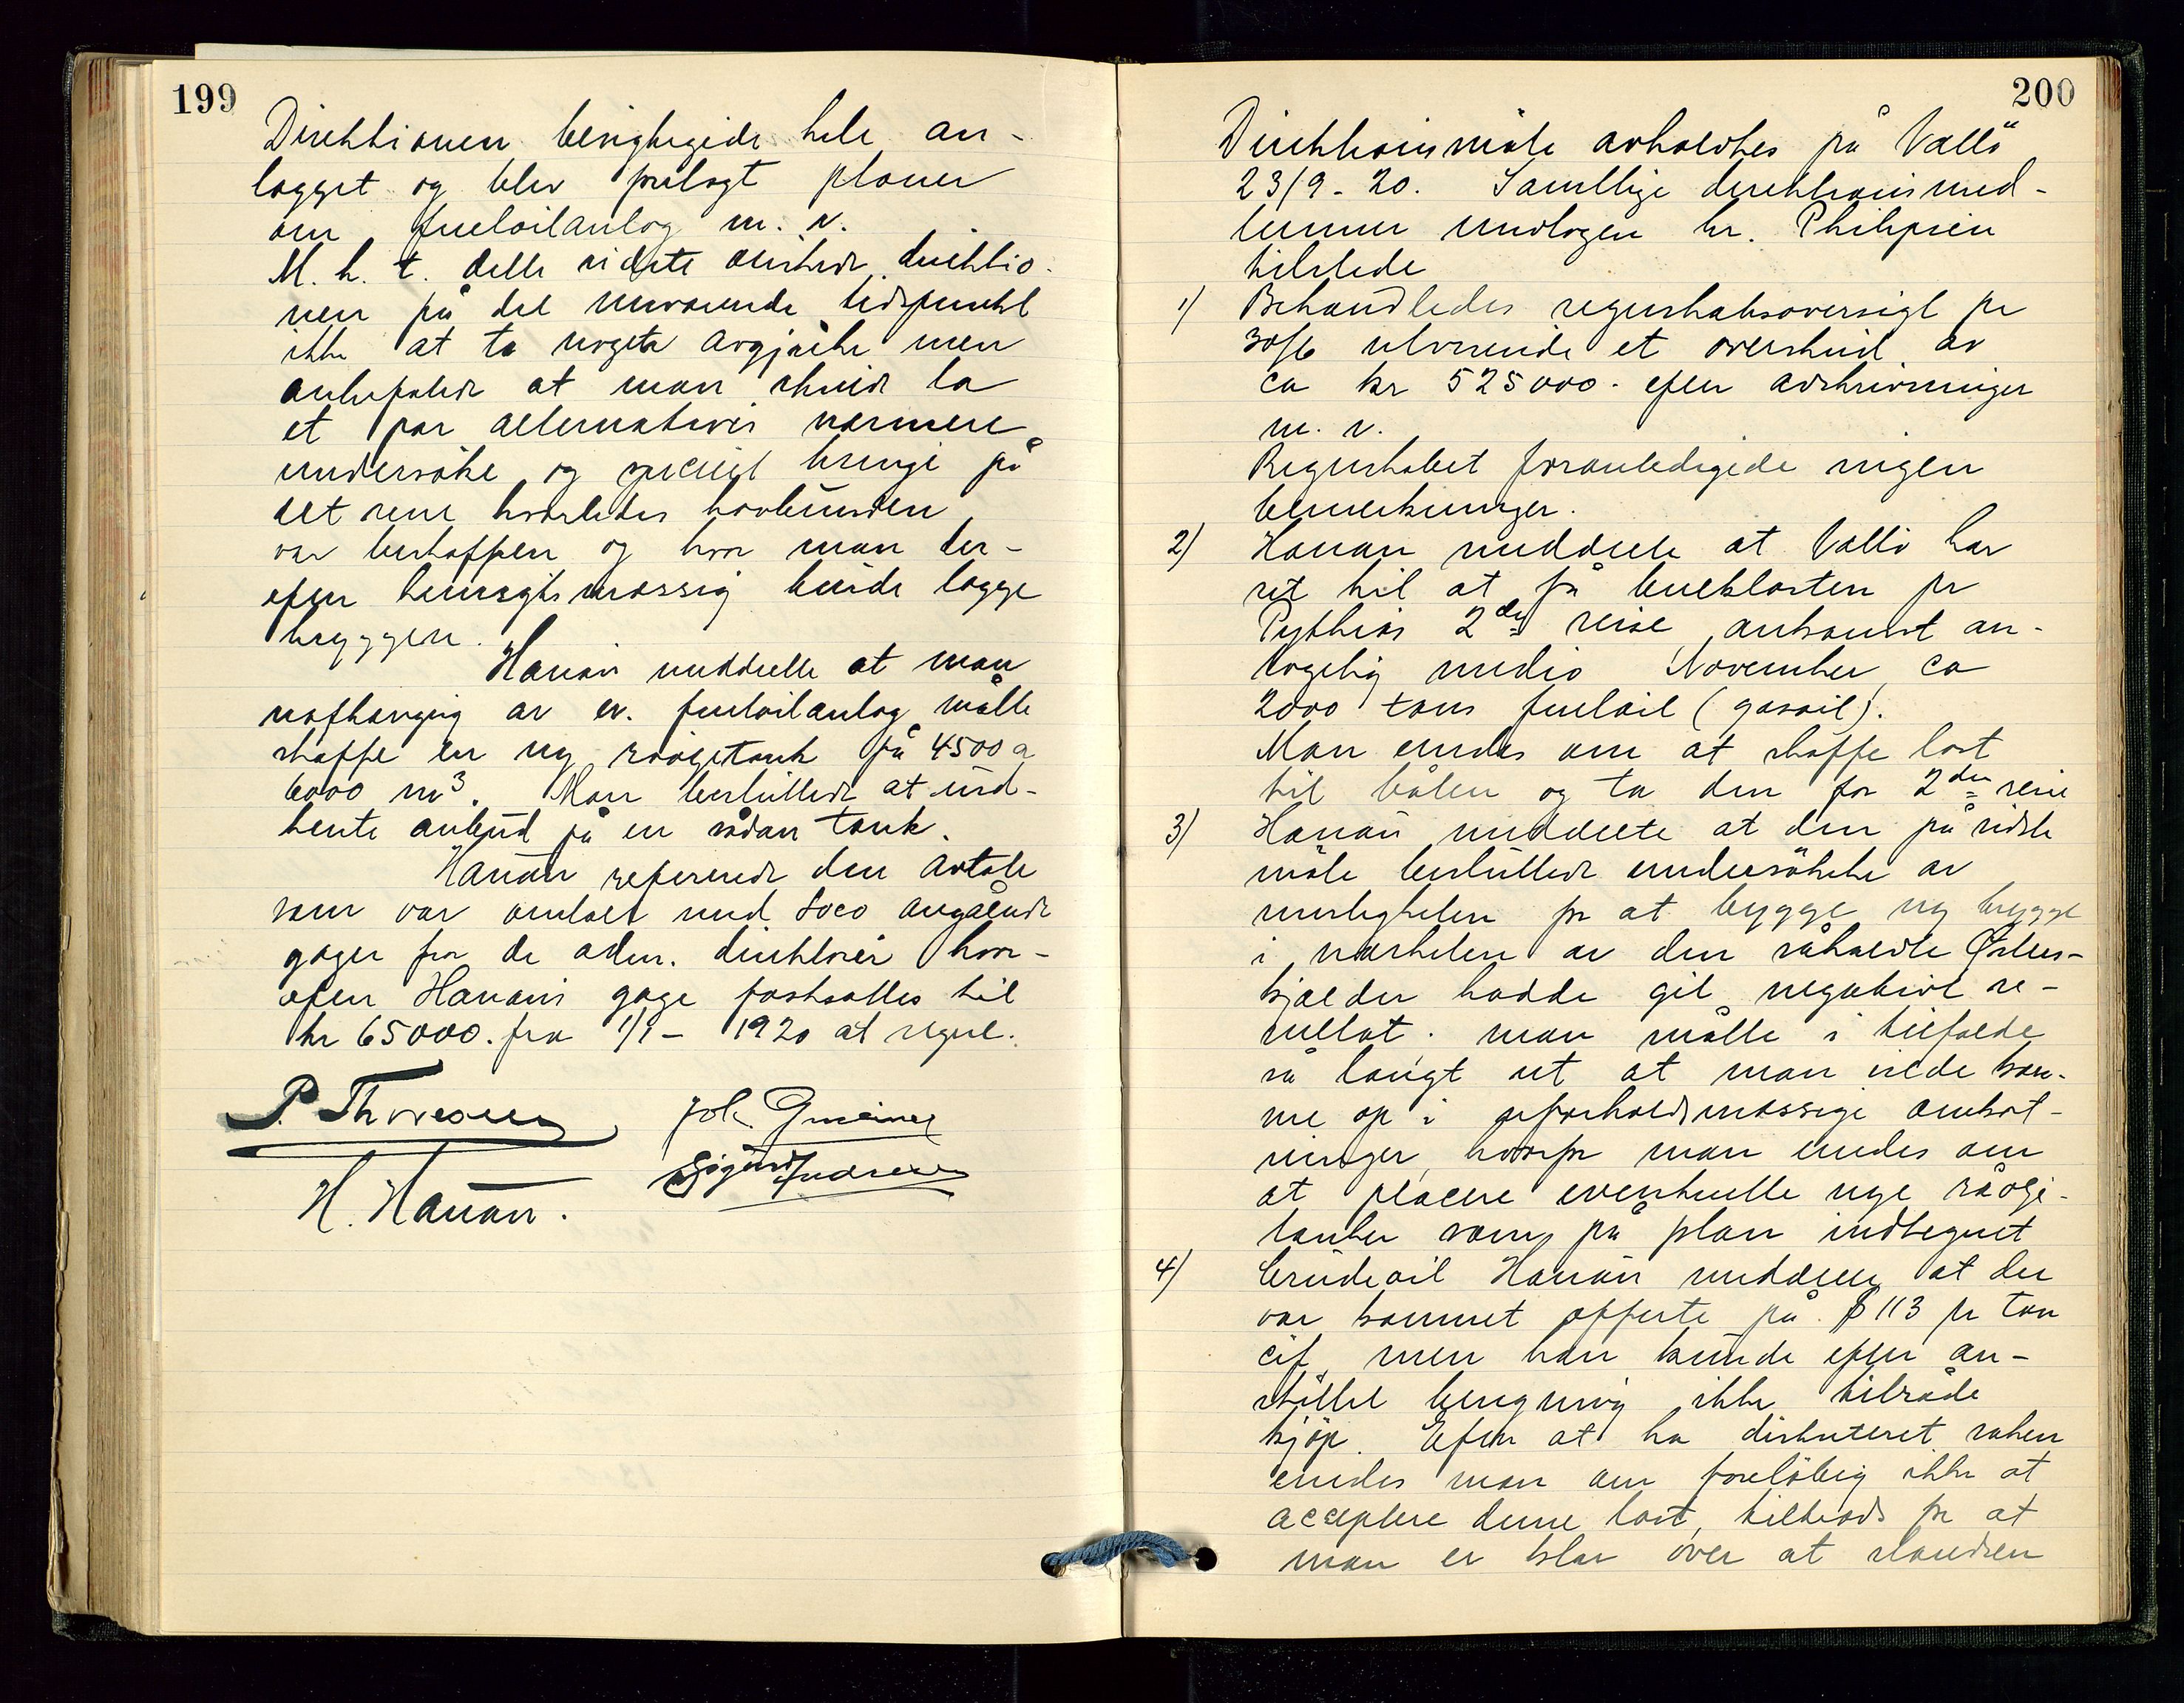 199
Direktionen besigtigede hele an-
lægget og blev frelagt planer
om fueloilanlæg m. v.
M. h. t. dette sidste ønskede direktio-
nen på det nuværende tidspunkt
ikke at ta nogen avgjørelse men
anbefalede at man skulde la
et par alternativer nærmere
undersøke og specielt bringe på
det rene hvorledes havbunden
var beskaffen og hvor man der-
efter hensigtsmæssig kunde lægge
bryggen.
Hanan meddelte at man
uafhængig av ev. fueloilanlæg måtte
skaffe en ny råoljetank på 4500 a
6000 m³. Man besluttede at ind-
hente anbud på en sådan tank.
Hanan refererede den avtale
som var omtalt med Soco angående
gager for de adm. direktører hvor-
efter Hanans gage fastsattes til
kr 65000. fra 1/1- 1920 at regne.
P. Thoresen Joh. Gmeiner
Sigurd Andresen
H. Hanan.
200
Direktionsmøte avholdtes på Vallö
23/9 - 20. Samtlige direktionsmed-
lemmer undtagen hr. Philipsen
tilstede
1) Behandledes regnskabsoversigt pr
30/6 utvisende et overskud av
ca kr 525000.- efter avskrivninger
m. v.
Regnskabet foranledigede ingen
bemerkninger.
2) Hanan meddelte at Vallö har
ret til at få bulklasten pr
Pythias 2den reise, ankomst an-
tagelig medio November, ca
2000 tons fueloil (gasoil).
Man enedes om at skaffe last
til båten og ta den for 2den reise
3) Hanan meddelte at den på sidste
møte besluttede undersøkelse av
muligheten for at bygge ny brygge
i nærheten av den såkaldte Østers-
kjælder hadde git negativt re-
sultat. man måtte i tilfælde
så langt ut at man vilde kom-
me op i uforholdsmæssige omkost-
ninger, hvorfor man enedes om
at placere eventuelle nye råolje-
tanker som på plan indtegnet
4) Crudeoil Hanan meddelte at der
var kommet offerte på $ 113 pr ton
cif, men han kunde efter an-
stillet beregning ikke tilråde
kjøp. Efter at ha diskuteret saken
enedes man om foreløbig ikke at
acceptere denne last, tiltrods for at
man er klar over at standsen